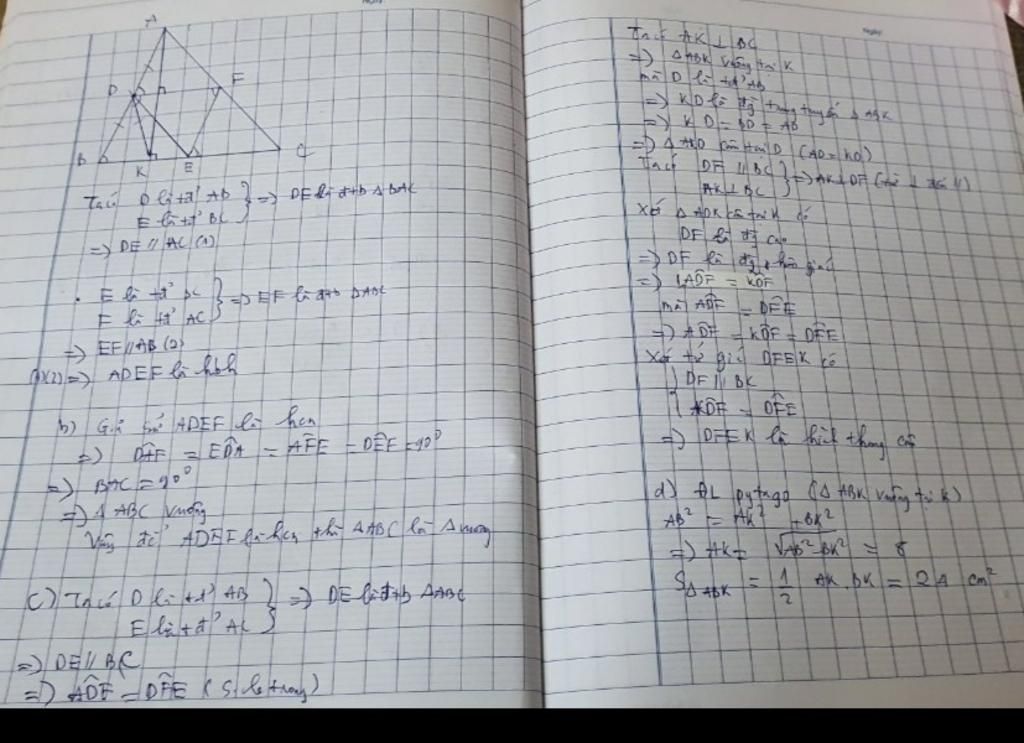 A
D
F
B
K
E
C
Ta có D là tđ' AB } => DE là đtb ΔBAC
E là tđ' BC
=> DE // AC (1)
E là tđ' BC } => EF là đtb ΔABC
F là tđ' AC
=> EF // AB (2)
(1)(2) => ADEF là hbh
b) Giả sử ADEF là hcn
=> DAF = EDA = AFE = DEF = 90°
=> BAC = 90°
=> Δ ABC vuông
Vậy để ADEF là hcn thì ΔABC là Δ vuông
c) Ta có D là tđ' AB } => DE là đtb ΔABC
E là tđ' AC
=> DE // BC
=> ADF = DFE (so le trong)
Ta có AK ⊥ BC
=> ΔABK vuông tại K
mà D là tđ' AB
=> KD là đg trung tuyến Δ ABK
=> KD = BD = AB
=> Δ AKD cân tại D (AD = KD)
Ta có DF // BC } => AK ⊥ DF
AK ⊥ BC
Xét Δ ADK cân tại K có
DF là đg cao
=> DF là đg phân giác
=> ADF = KDF
mà ADF = DFE
=> ADF = KDF = DFE
Xét tứ giác DFEK có
{ DF // BK
KDF = DFE
=> DFEK là hình thang cân
d) ĐL pytago (Δ ABK vuông tại K)
AB² = AK² + BK²
=> AK = √AB² - BK² = 8
S Δ ABK = 1/2 AK . BK = 24 cm²